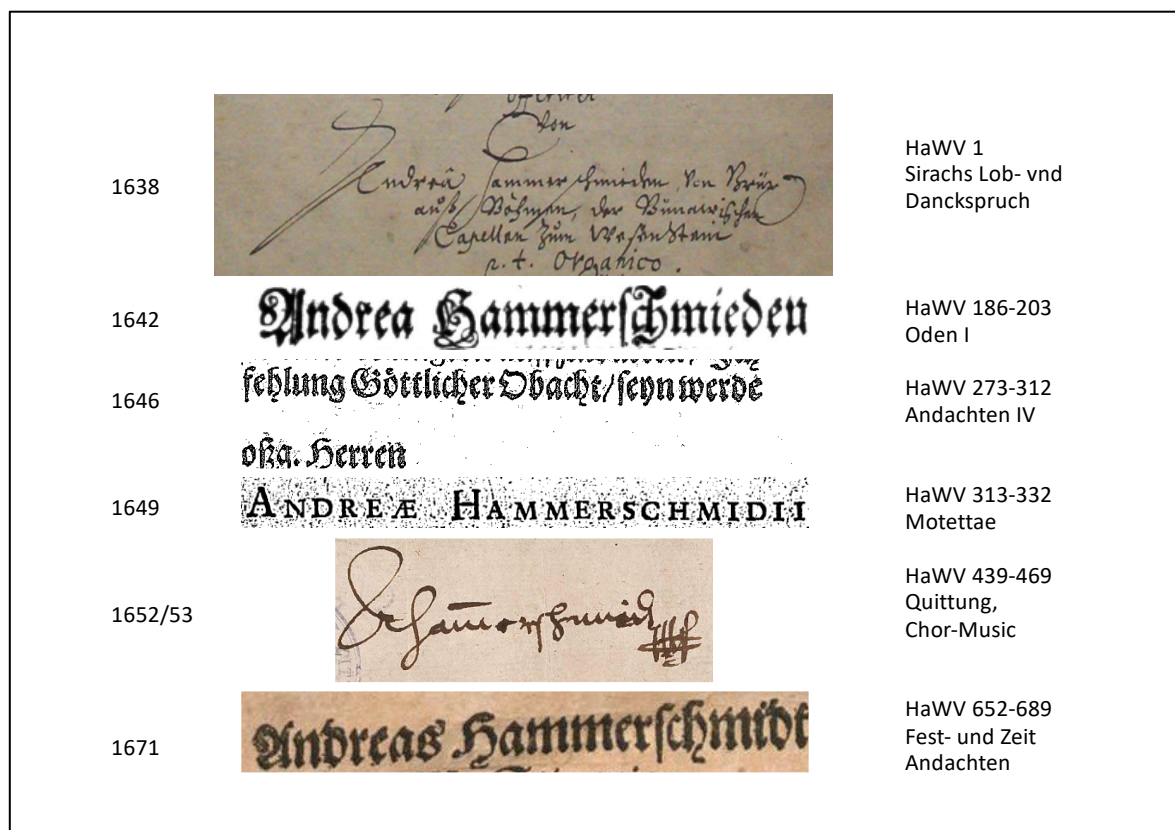 von
1638
Andreä Hammerschmieden, von Brüx
auß Böhmen, der Bünawischen
Capellen zum Wesenstein
p. t. Organico.
HaWV 1
Sirachs Lob- vnd
Danckspruch
1642
Andrea Hammerschmieden
HaWV 186-203
Oden I
1646
fehlung Göttlicher Obacht/ seyn werde
oßg. Herren
HaWV 273-312
Andachten IV
1649
ANDREÆ HAMMERSCHMIDII
HaWV 313-332
Motettae
1652/53
Ham̄erschmidt
HaWV 439-469
Quittung,
Chor-Music
1671
Andreas Hammerschmidt
HaWV 652-689
Fest- und Zeit
Andachten